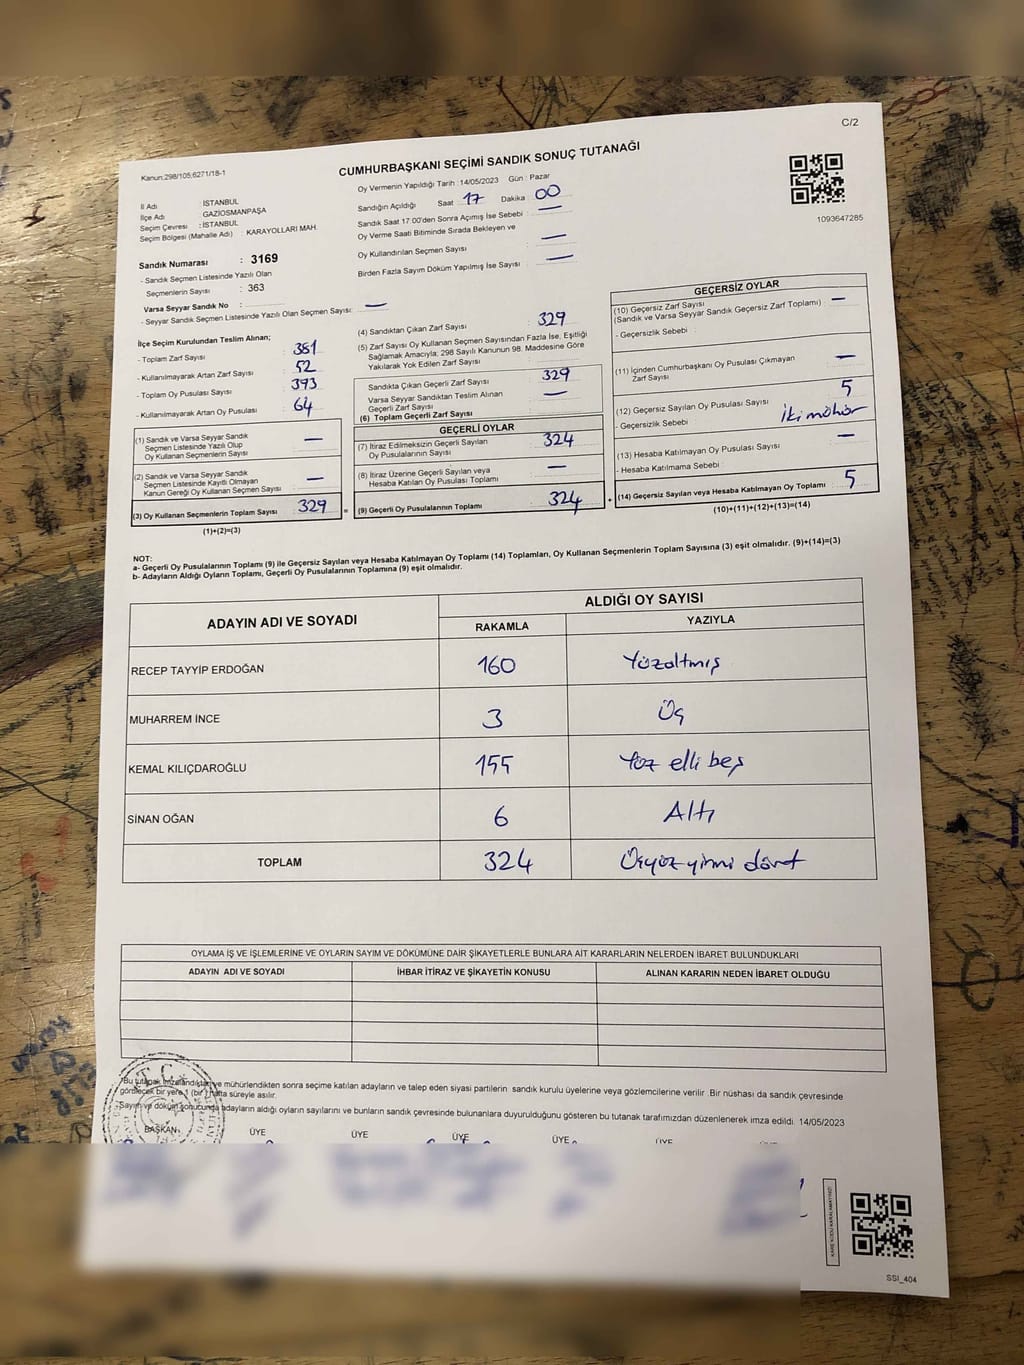 C/2
Kanun:298/105;6271/18-1
CUMHURBAŞKANI SEÇİMİ SANDIK SONUÇ TUTANAĞI
Oy Vermenin Yapıldığı Tarih :14/05/2023 Gün : Pazar
İl Adı : İSTANBUL
İlçe Adı GAZİOSMANPAŞA
Seçim Çevresi : İSTANBUL
Seçim Bölgesi (Mahalle Adı) : KARAYOLLARI MAH.
Sandık Numarası : 3169
- Sandık Seçmen Listesinde Yazılı Olan
Seçmenlerin Sayısı : 363
Varsa Seyyar Sandık No :
- Seyyar Sandık Seçmen Listesinde Yazılı Olan Seçmen Sayısı: —
Sandığın Açıldığı Saat 17 Dakika 00
Sandık Saat 17:00'den Sonra Açımış İse Sebebi : —
Oy Verme Saati Bitiminde Sırada Bekleyen ve
Oy Kullandırılan Seçmen Sayısı —
Birden Fazla Sayım Döküm Yapılmış İse Sayısı : —
1093647285
İlçe Seçim Kurulundan Teslim Alınan;
- Toplam Zarf Sayısı : 381
- Kullanılmayarak Artan Zarf Sayısı : 52
- Toplam Oy Pusulası Sayısı : 393
- Kullanılmayarak Artan Oy Pusulası : 64
(1) Sandık ve Varsa Seyyar Sandık
Seçmen Listesinde Yazılı Olup
Oy Kullanan Seçmenlerin Sayısı —
(2) Sandık ve Varsa Seyyar Sandık
Seçmen Listesinde Kayıtlı Olmayan
Kanun Gereği Oy Kullanan Seçmen Sayısı : —
(3) Oy Kullanan Seçmenlerin Toplam Sayısı : 329
(1)+(2)=(3)
(4) Sandıktan Çıkan Zarf Sayısı : 329
(5) Zarf Sayısı Oy Kullanan Seçmen Sayısından Fazla İse, Eşitliği
Sağlamak Amacıyla; 298 Sayılı Kanunun 98. Maddesine Göre
Yakılarak Yok Edilen Zarf Sayısı
Sandıkta Çıkan Geçerli Zarf Sayısı 329
Varsa Seyyar Sandıktan Teslim Alınan
Geçerli Zarf Sayısı —
(6) Toplam Geçerli Zarf Sayısı
GEÇERLİ OYLAR
(7) İtiraz Edilmeksizin Geçerli Sayılan
Oy Pusulalarının Sayısı : 324
(8) İtiraz Üzerine Geçerli Sayılan veya
Hesaba Katılan Oy Pusulası Toplamı —
(9) Geçerli Oy Pusulalarının Toplamı 324
GEÇERSİZ OYLAR
(10) Geçersiz Zarf Sayısı
(Sandık ve Varsa Seyyar Sandık Geçersiz Zarf Toplamı) : —
- Geçersizlik Sebebi :
(11) İçinden Cumhurbaşkanı Oy Pusulası Çıkmayan
Zarf Sayısı —
(12) Geçersiz Sayılan Oy Pusulası Sayısı 5
- Geçersizlik Sebebi : İki mühür
(13) Hesaba Katılmayan Oy Pusulası Sayısı —
- Hesaba Katılmama Sebebi :
(14) Geçersiz Sayılan veya Hesaba Katılmayan Oy Toplamı : 5
(10)+(11)+(12)+(13)=(14)
NOT:
a- Geçerli Oy Pusulalarının Toplamı (9) ile Geçersiz Sayılan veya Hesaba Katılmayan Oy Toplamı (14) Toplamları, Oy Kullanan Seçmenlerin Toplam Sayısına (3) eşit olmalıdır. (9)+(14)=(3)
b- Adayların Aldığı Oyların Toplamı, Geçerli Oy Pusulalarının Toplamına (9) eşit olmalıdır.
ADAYIN ADI VE SOYADI
ALDIĞI OY SAYISI
RAKAMLA YAZIYLA
RECEP TAYYİP ERDOĞAN 160 Yüzaltmış
MUHARREM İNCE 3 Üç
KEMAL KILIÇDAROĞLU 155 Yüz elli beş
SİNAN OĞAN 6 Altı
TOPLAM 324 Üçyüz yirmi dört
OYLAMA İŞ VE İŞLEMLERİNE VE OYLARIN SAYIM VE DÖKÜMÜNE DAİR ŞİKAYETLERLE BUNLARA AİT KARARLARIN NELERDEN İBARET BULUNDUKLARI
ADAYIN ADI VE SOYADI İHBAR İTİRAZ VE ŞİKAYETİN KONUSU ALINAN KARARIN NEDEN İBARET OLDUĞU
*Bu tutanak imzalandıktan ve mühürlendikten sonra seçime katılan adayların ve talep eden siyasi partilerin sandık kurulu üyelerine veya gözlemcilerine verilir .Bir nüshası da sandık çevresinde
görülecek bir yere 1 (bir) hafta süreyle asılır.
*Sayım ve döküm sonucunda adayların aldığı oyların sayılarını ve bunların sandık çevresinde bulunanlara duyurulduğunu gösteren bu tutanak tarafımızdan düzenlenerek imza edildi. 14/05/2023
BAŞKAN ÜYE ÜYE ÜYE ÜYE
T.C.
SSİ_404